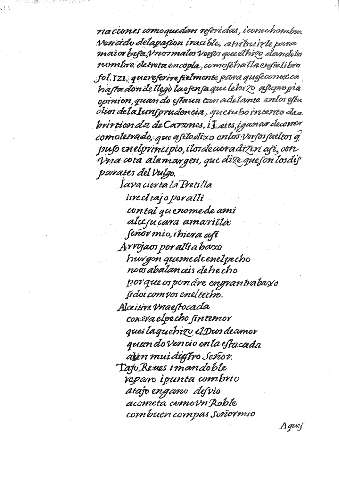 naciones como quedan referidas, i como hombre
Vencido de la pasion irascible, atribuirle para
maior befa, Vnos malos Versos que el hizo dandoles
nombre de treta en copla, como se halla en su libro
fol. 121. que referire fielmente, para que se conozca
hasta donde llegò la ofensa que le hizo a su propia
opinion, quando estava tan adelante en los estu
dios de la Iurisprudencia, que
brir tienda de Leies, i ganar de comer
como letrado, que asi lo dixo en los Versos sueltos q̃
puso en el principio, i los decora dizen asi, con
Vna nota al margen, que dize que son los dis
parates del Vulgo.
la pretilla
tajo por alli
con tal que no me de a mi
en su cara amarilla
señor mio, i hiera asi
Arrojaos por alla baxo
hurgon que me de en el pecho
no os abalanceis de hecho
porque os pondre en gran trabaxo
si dos con vos en el techo.
Vna estocada
el pecho sin temor
que es la que hizo el Dios de amor
quando Vencio en la estacada
a en mui diestro Señor.
Tajo, Reves i mandoble
reparo i punta con brio
atajo engaño desvio
acometa como Vn Roble
con buen compas Señor mio
Aquej